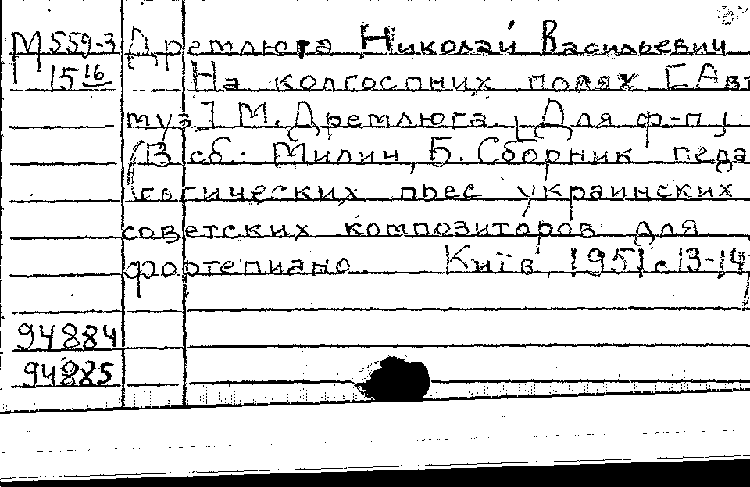 М559-3 Дремлюга Николай Васильевич
1516 На колгоспних полях [Авт
муз] М. Дремлюга. [Для ф-п]
(Из сб: Милич, Б. Сборник педа
гогических пьес украинских
советских композиторов для
фортепиано. Київ, 1951 с 13-14
94884
94885